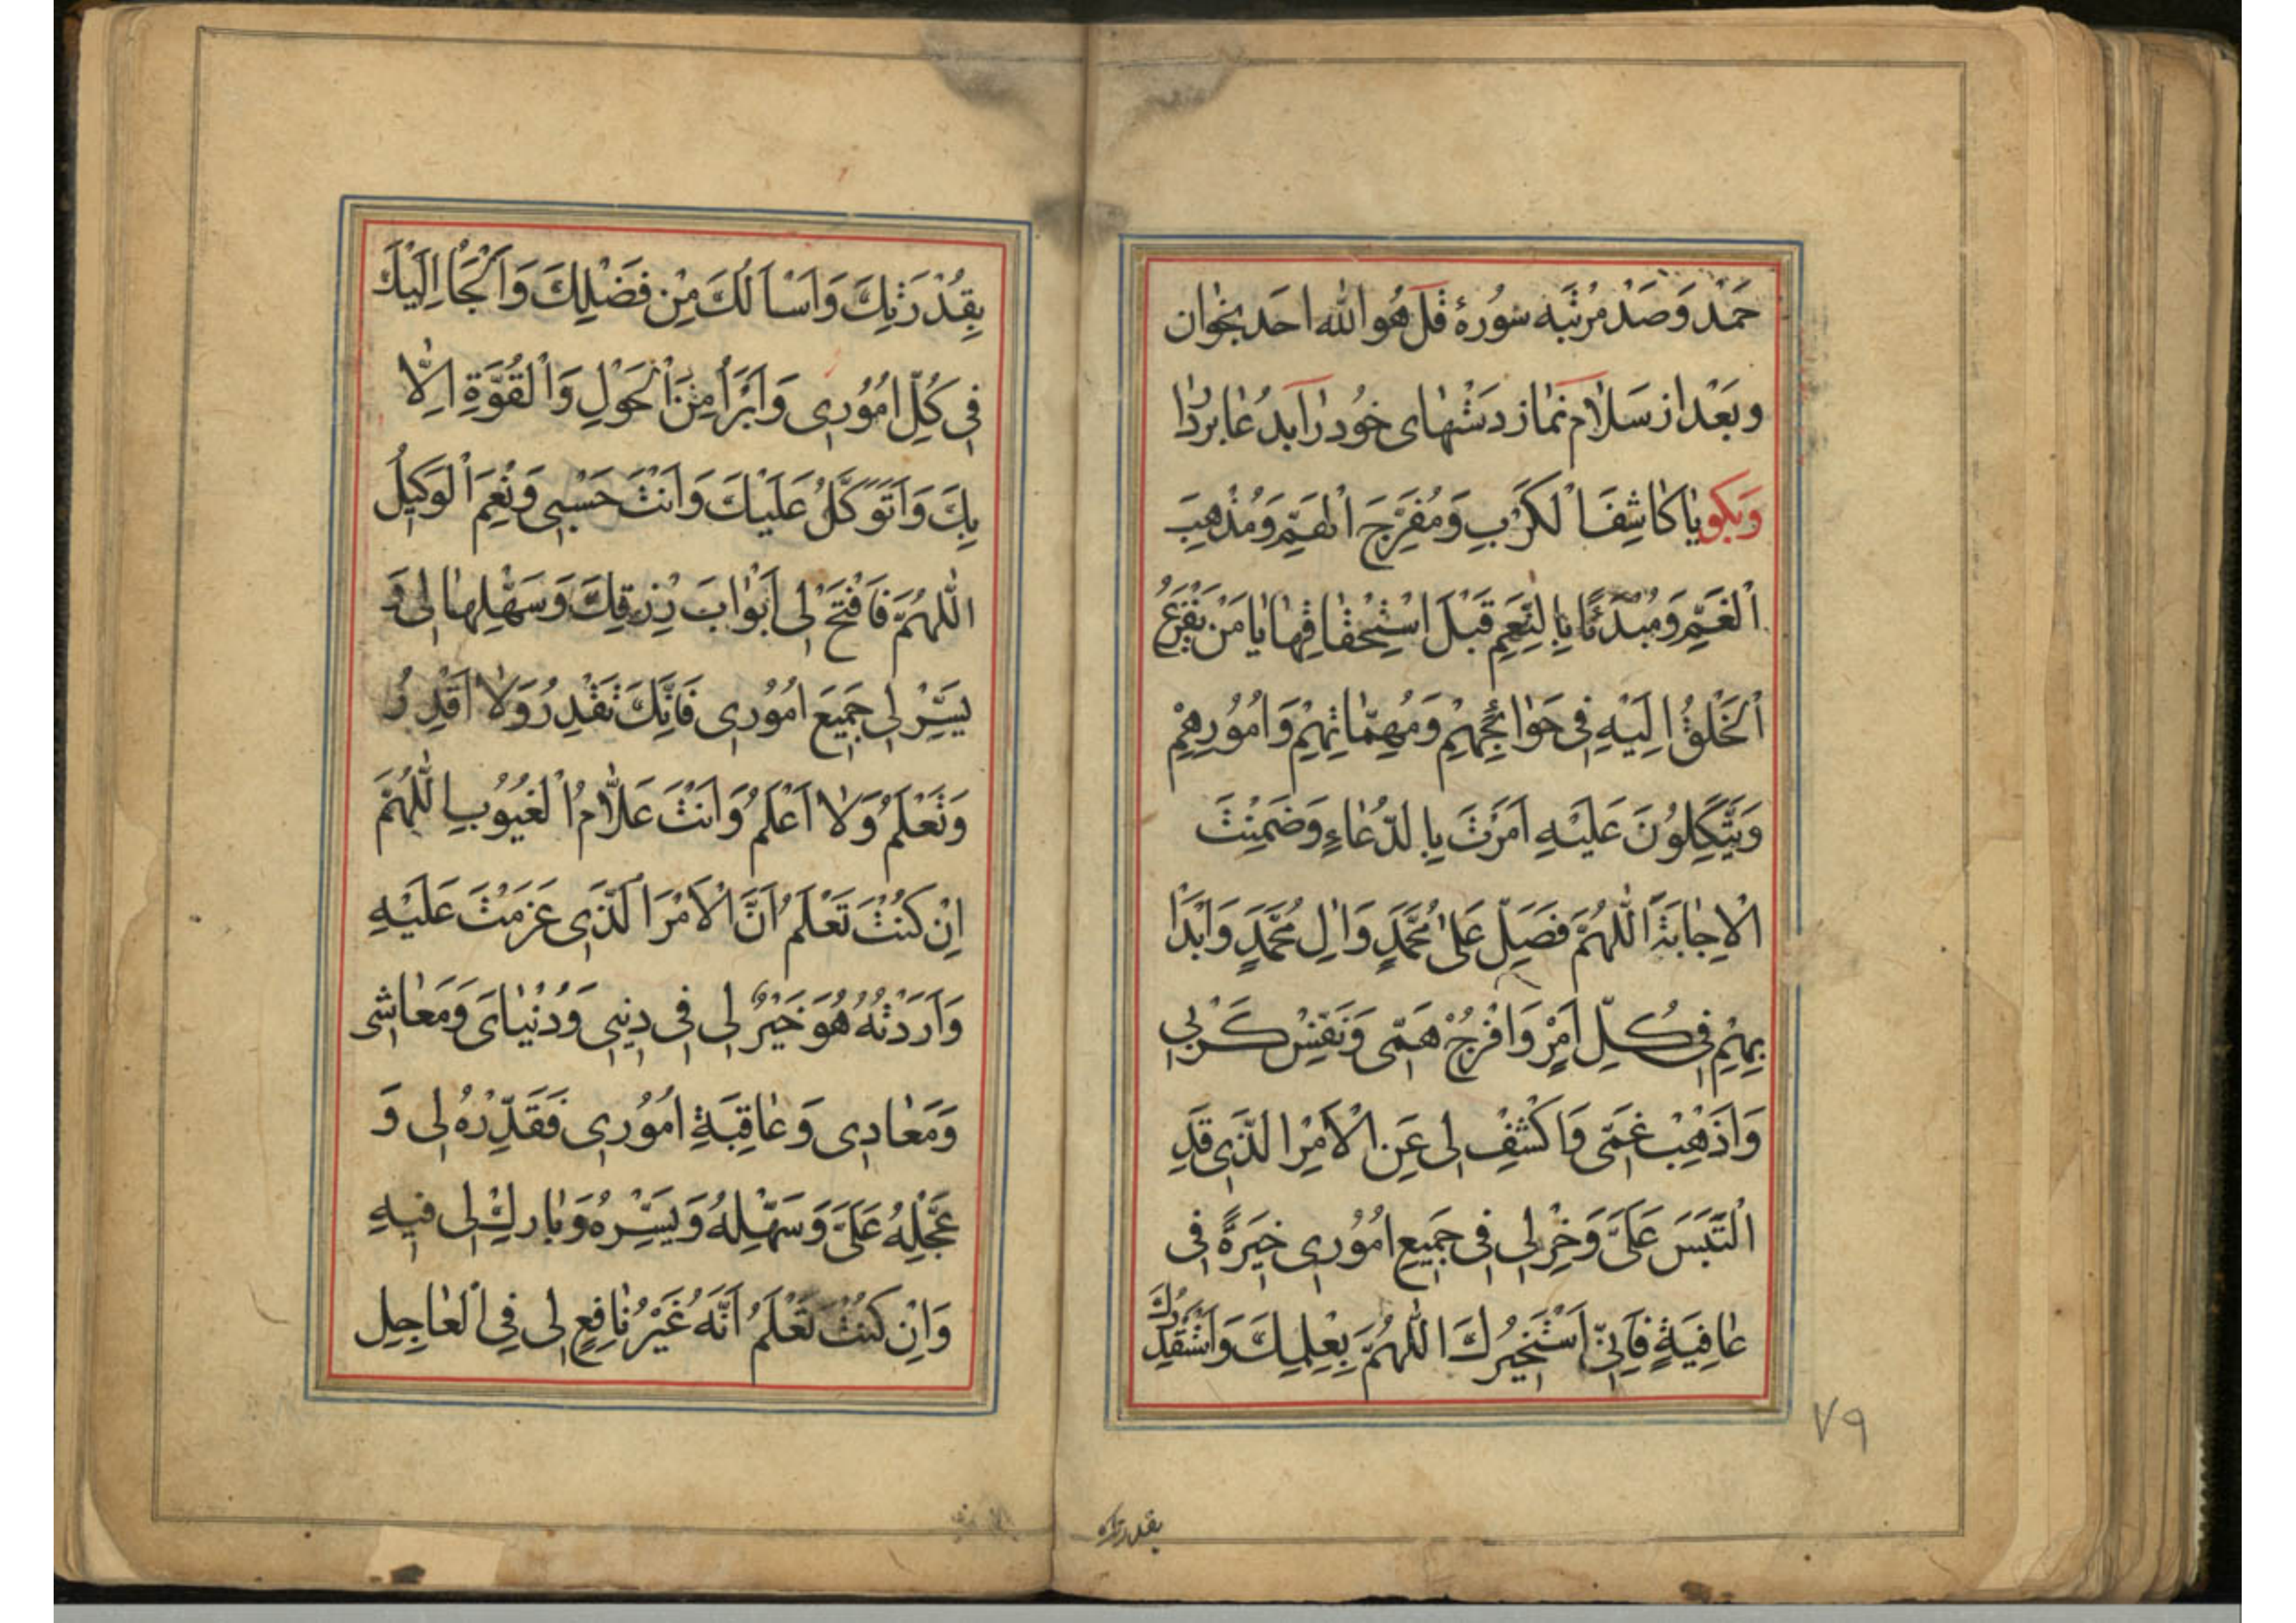 حَمْد وَصَدْ مَرْتَبَه سُورهٔ قُلْ هُوَ اللّٰه احَد بخوان
وبَعْد از سَلام نماز دَسْتهای خُود را بدُعا بردار
وَبكو يٰا كٰاشِفَ الْكَرْبِ وَمُفَرِّجَ الْهَمِّ وَمُذْهِبَ
الْغَمِّ وَمُبْتَدِئًا بِالنِّعَمِ قَبْلَ اسْتِحْقٰاقِهٰا يٰا مَنْ يَفْزَعُ
الْخَلْقُ اِلَيْهِ فِى حَوٰائِجِهِمْ وَمُهِمّٰاتِهِمْ وَاُمُورِهِمْ
وَيَتَّكِلُونَ عَلَيْهِ اَمَرْتَ بِالدُّعٰاءِ وَضَمِنْتَ
الْاِجٰابَةَ اَللّٰهُمَّ فَصَلِّ عَلىٰ مُحَمَّدٍ وَاٰلِ مُحَمَّدٍ وَابْدَاْ
بِهِمْ فِى كُلِّ اَمْرٍ وَافْرُجْ هَمِّى وَنَفِّسْ كَرْبِى
وَاَذْهِبْ غَمِّى وَاكْشِفْ لِى عَنِ الْاَمْرِ الَّذِى قَدِ
الْتَبَسَ عَلَىَّ وَخِرْ لِى فِى جَمِيعِ اُمُورِى خِيَرَةً فِى
عٰافِيَةٍ فَاِنِّى اَسْتَخِيرُكَ اللّٰهُمَّ بِعِلْمِكَ وَاَسْتَقْدِرُكَ
٧٩
بقدرتك
بِقُدْرَتِكَ وَاَسْاَلُكَ مِنْ فَضْلِكَ وَاَلْجَاُ اِلَيْكَ
فِى كُلِّ اُمُورِى وَاَبْرَاُ مِنَ الْحَوْلِ وَالْقُوَّةِ اِلّٰا
بِكَ وَاَتَوَكَّلُ عَلَيْكَ وَاَنْتَ حَسْبِى وَنِعْمَ الْوَكِيلُ
اَللّٰهُمَّ فَافْتَحْ لِى اَبْوٰابَ رِزْقِكَ وَسَهِّلْهٰا لِى وَ
يَسِّرْ لِى جَمِيعَ اُمُورِى فَاِنَّكَ تَقْدِرُ وَلٰا اَقْدِرُ
وَتَعْلَمُ وَلٰا اَعْلَمُ وَاَنْتَ عَلّٰامُ الْغُيُوبِ اللّٰهُمَّ
اِنْ كُنْتَ تَعْلَمُ اَنَّ الْاَمْرَ الَّذِى عَزَمْتَ عَلَيْهِ
وَاَرَدْتُهُ هُوَ خَيْرٌ لِى فِى دِينِى وَدُنْيٰاىَ وَمَعٰاشِى
وَمَعٰادِى وَعٰاقِبَةِ اُمُورِى فَقَدِّرْهُ لِى وَ
عَجِّلْهُ عَلَىَّ وَسَهِّلْهُ وَيَسِّرْهُ وَبٰارِكْ لِى فِيهِ
وَاِنْ كُنْتَ تَعْلَمُ اَنَّهُ غَيْرُ نٰافِعٍ لِى فِى الْعٰاجِلِ